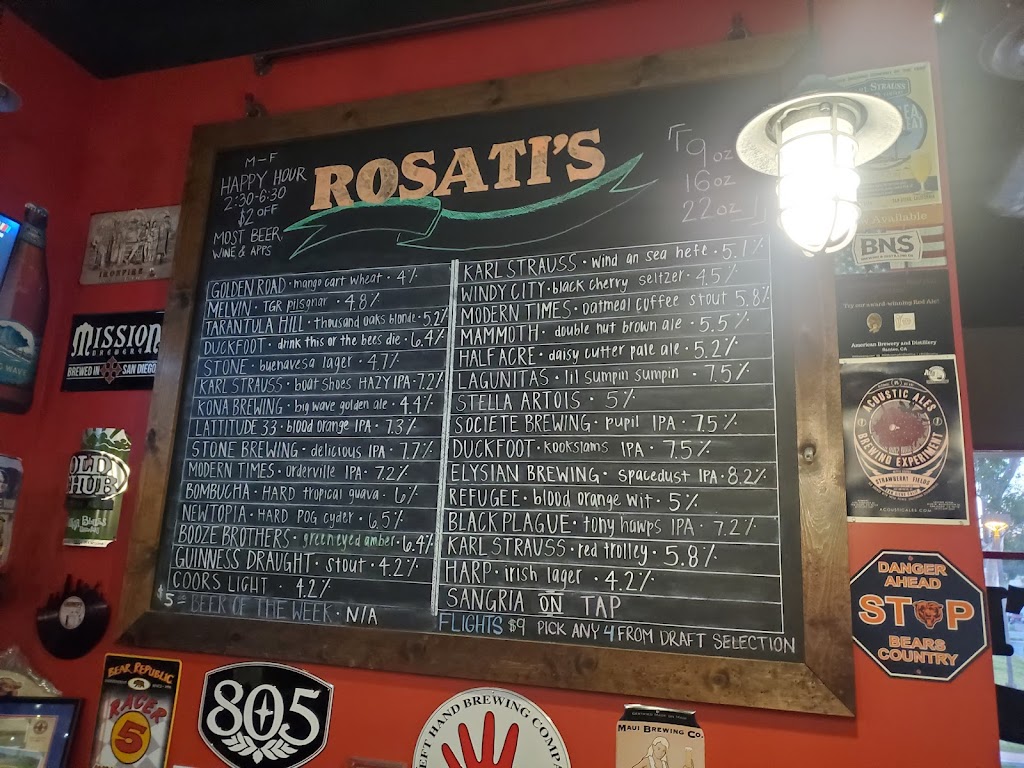 M-F
HAPPY HOUR
2:30-6:30
$2 OFF
MOST BEER,
WINE & APPS
ROSATI'S
9 oz
16 oz
22 oz
GOLDEN ROAD • mango cart wheat • 4%
MELVIN • TGR pilsgnar • 4.8%
TARANTULA HILL • thousand oaks blonde • 5.2%
DUCKFOOT • drink this or the bees die • 6.4%
STONE • buenavesa lager • 4.7%
KARL STRAUSS • boat shoes HAZY IPA • 7.2%
KONA BREWING • big wave golden ale • 4.4%
LATTITUDE 33 • blood orange IPA • 7.3%
STONE BREWING • delicious IPA • 7.7%
MODERN TIMES • orderville IPA • 7.2%
BOMBUCHA • HARD tropical guava • 6%
NEWTOPIA • HARD POG cyder • 6.5%
BOOZE BROTHERS • green eyed amber • 6.4%
GUINNESS DRAUGHT • stout • 4.2%
COORS LIGHT • 4.2%
$5 BEER OF THE WEEK • N/A
KARL STRAUSS • wind an sea hefe • 5.1%
WINDY CITY • black cherry seltzer • 4.5%
MODERN TIMES • oatmeal coffee stout 5.8%
MAMMOTH • double nut brown ale • 5.5%
HALF ACRE • daisy cutter pale ale • 5.2%
LAGUNITAS • lil sumpin sumpin • 7.5%
STELLA ARTOIS • 5%
SOCIETE BREWING • pupil IPA • 7.5%
DUCKFOOT • kookslams IPA • 7.5%
ELYSIAN BREWING • spacedust IPA • 8.2%
REFUGEE • blood orange wit • 5%
BLACK PLAGUE • tony hawps IPA • 7.2%
KARL STRAUSS • red trolley • 5.8%
HARP • irish lager • 4.2%
SANGRIA ON TAP
FLIGHTS $9 PICK ANY 4 FROM DRAFT SELECTION
IRONFIRE
MISSION
BREWERY
BREWED IN SAN DIEGO
OLD
CHUB
BEAR REPUBLIC
RACER
5
805
LEFT HAND BREWING COMPANY
MAUI BREWING CO.
STRAUSS
Available
BNS
Try our award-winning Red Ale!
American Brewery and Distillery
Santee, CA
ACOUSTIC ALES
BREWING EXPERIMENT
STRAWBERRY FIELDS
ACOUSTICALES.COM
DANGER
AHEAD
STOP
BEARS
COUNTRY